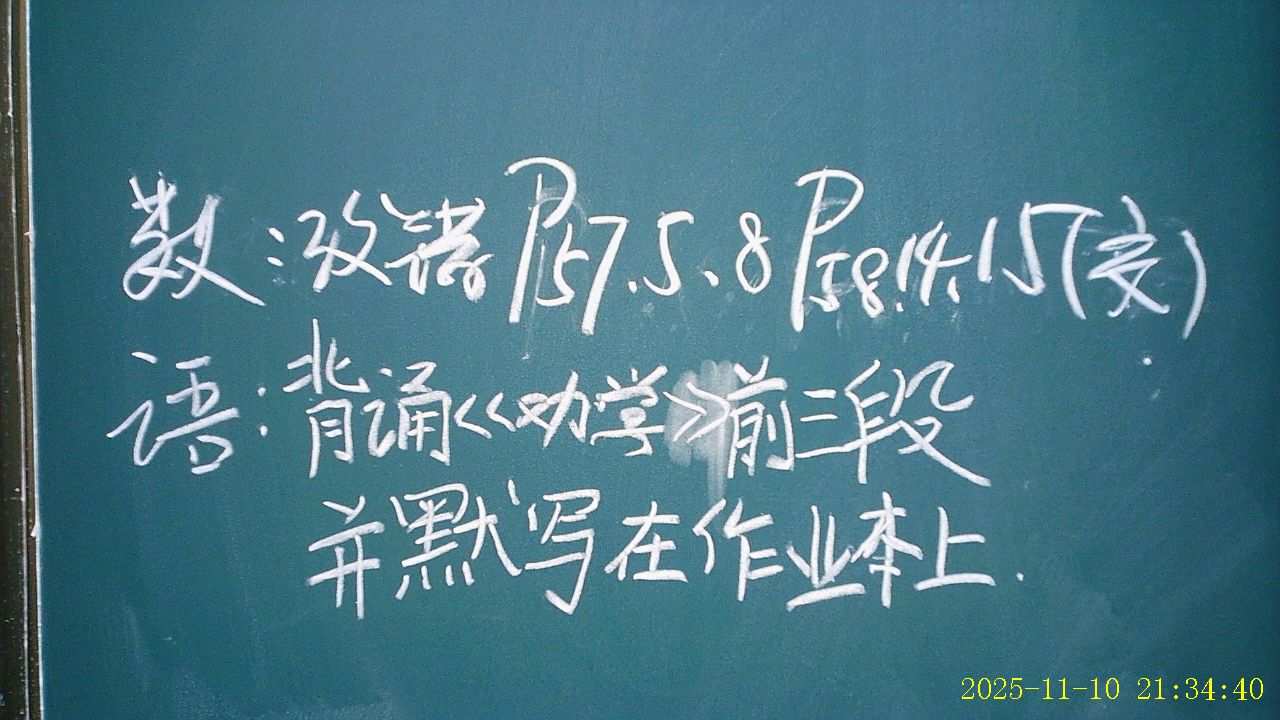 数:改错 P57.5、8 P58.14.15(交)
语:背诵<<劝学>>前三段
并默写在作业本上.
2025-11-10 21:34:40